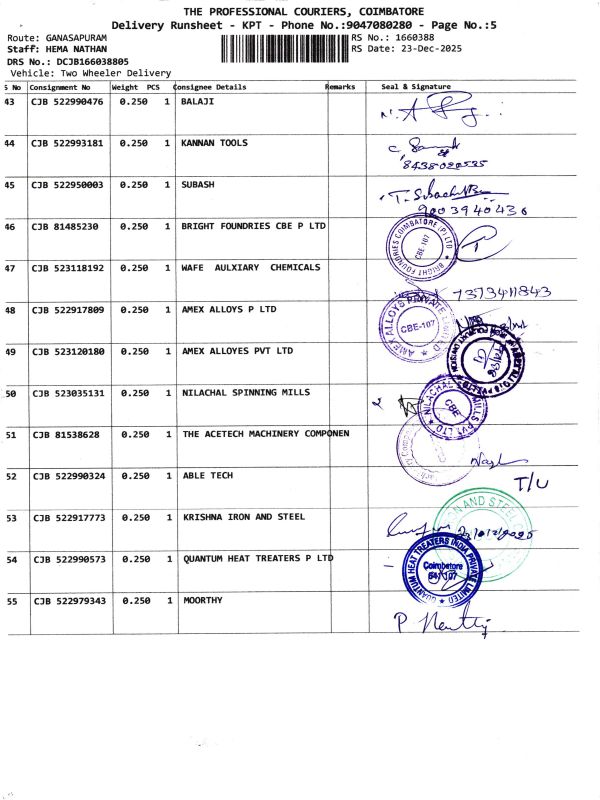 THE PROFESSIONAL COURIERS, COIMBATORE
Delivery Runsheet - KPT - Phone No.:9047080280 - Page No.:5
Route: GANASAPURAM
RS No.: 1660388
Staff: HEMA NATHAN
RS Date: 23-Dec-2025
DRS No.: DCJB166038805
Vehicle: Two Wheeler Delivery
S No Consignment No Weight PCS Consignee Details Remarks Seal & Signature
43 CJB 522990476 0.250 1 BALAJI
44 CJB 522993181 0.250 1 KANNAN TOOLS
8438020535
45 CJB 522950003 0.250 1 SUBASH
9003940430
46 CJB 81485230 0.250 1 BRIGHT FOUNDRIES CBE P LTD
BRIGHT FOUNDRIES COIMBATORE (P) LTD
CBE-107
47 CJB 523118192 0.250 1 WAFE AULXIARY CHEMICALS
7373411843
48 CJB 522917809 0.250 1 AMEX ALLOYS P LTD
AMEX ALLOYS PRIVATE LIMITED
CBE-107
49 CJB 523120180 0.250 1 AMEX ALLOYES PVT LTD
50 CJB 523035131 0.250 1 NILACHAL SPINNING MILLS
NILACHAL MILLS PVT LTD
CBE
51 CJB 81538628 0.250 1 THE ACETECH MACHINERY COMPONEN
52 CJB 522990324 0.250 1 ABLE TECH
T/U
53 CJB 522917773 0.250 1 KRISHNA IRON AND STEEL
54 CJB 522990573 0.250 1 QUANTUM HEAT TREATERS P LTD
QUANTUM HEAT TREATERS INDIA PRIVATE LIMITED
Coimbatore
641 107
55 CJB 522979343 0.250 1 MOORTHY